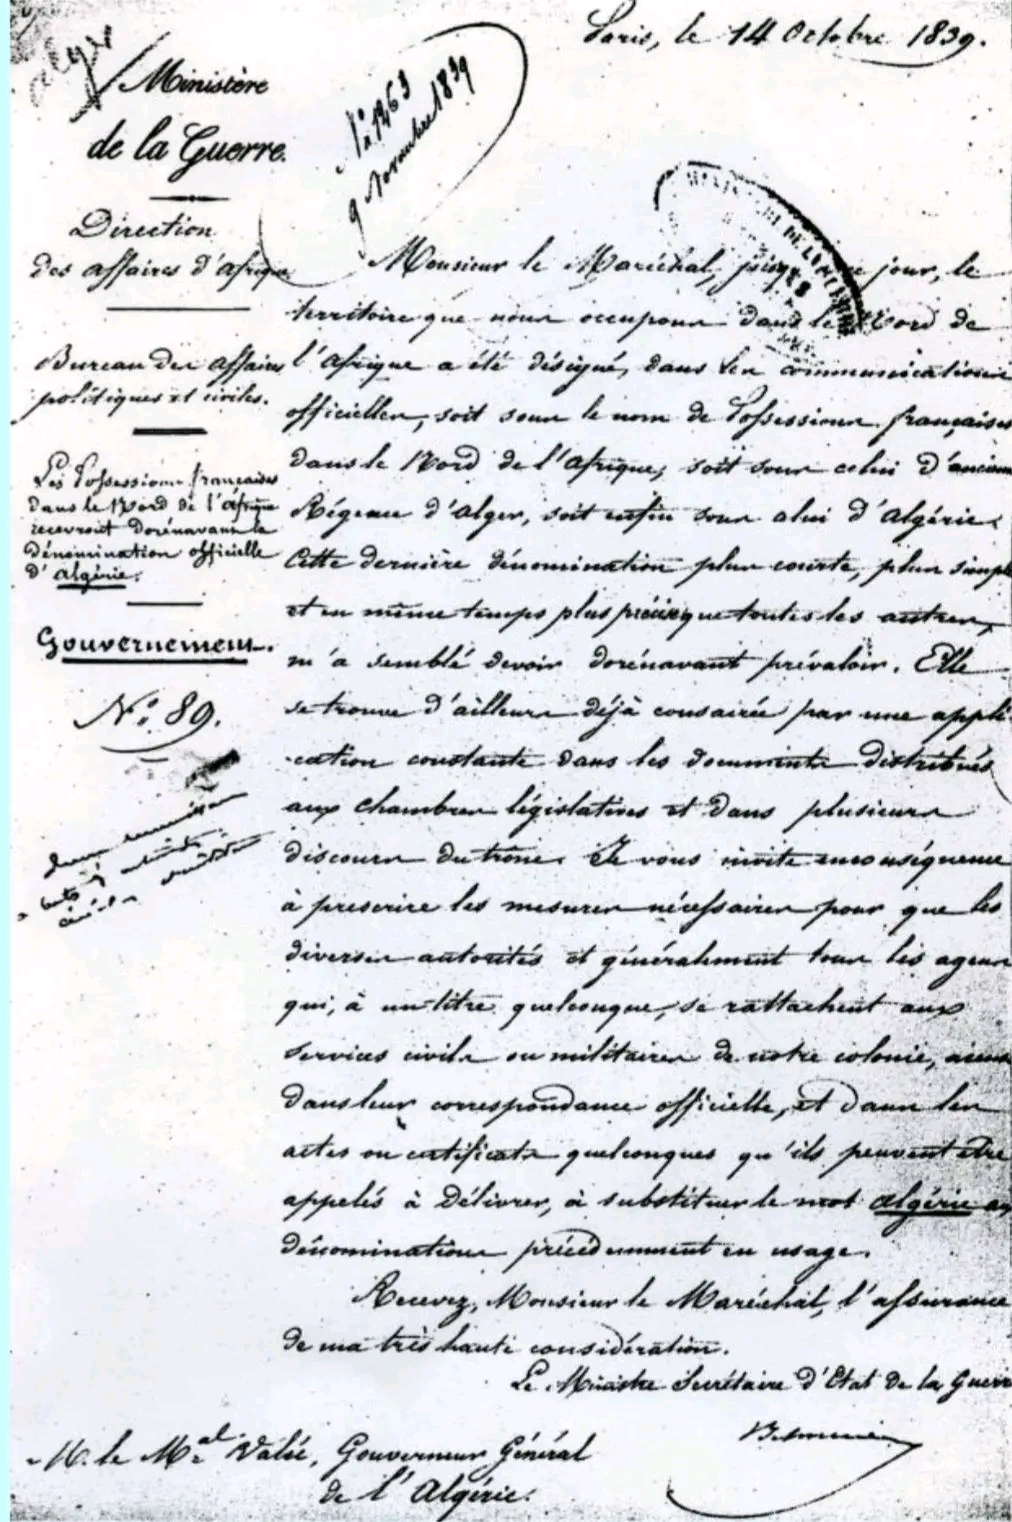 Paris, le 14 Octobre 1839.
Alger
Ministère
de la Guerre.
Nº 1463
9 Novembre 1839
Direction
des affaires d'Afrique
Bureau des affaires
politiques et civiles.
Les Possessions françaises
dans le Nord de l'Afrique
recevront dorénavant la
dénomination officielle
d'Algérie.
Gouvernement.
Nº 89.
Monsieur le Maréchal, jusqu' jour, le
territoire que nous occupons dans le Nord de
l'Afrique a été désigné, dans les communications
officielles, soit sous le nom de Possessions françaises
dans le Nord de l'Afrique, soit sous celui d'ancienne
Régence d'Alger, soit enfin sous celui d'Algérie.
Cette dernière dénomination plus courte, plus simple
et en même temps plus précise que toutes les autres,
m'a semblé devoir dorénavant prévaloir. Elle
se trouve d'ailleurs déjà consacrée par une appli
-cation constante dans les documents distribués
aux chambres législatives et dans plusieurs
discours du trône. Je vous invite en conséquence
à prescrire les mesures nécessaires pour que les
diverses autorités et généralement tous les agens
qui, à un titre quelconque, se rattachent aux
services civils ou militaires de notre colonie, aient
dans leur correspondance officielle, et dans les
actes ou certificats quelconques qu'ils peuvent être
appelés à délivrer, à substituer le mot Algérie aux
dénominations précédemment en usage.
Recevez, Monsieur le Maréchal, l'assurance
de ma très haute considération.
Le Ministre Secrétaire d'Etat de la Guerre
M. le Mal Valée, Gouverneur Général
de l'Algérie.